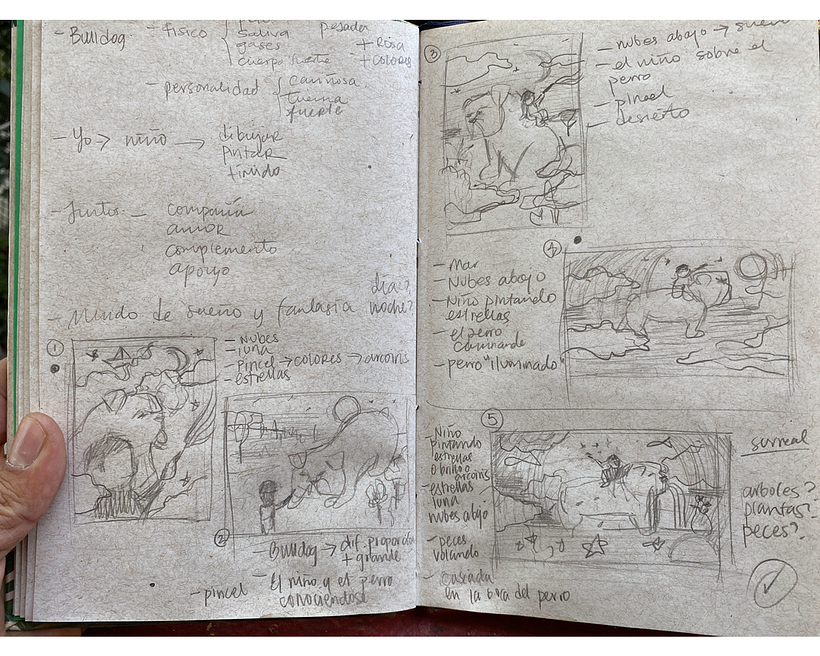 - Bulldog - físico
saliva
gases
cuerpo fuerte
pesada
+ Rosa
+ colores
- personalidad
Cariñosa
tierna
fuerte
- Yo → niño →
dibujar
pintar
tímido
- Juntos -
compañía
amor
complemento
apoyo
- Mundo de sueño y fantasía
día?
noche?
1
- Nubes
- luna
- pincel → colores → arcoiris
- estrellas
2
- Bulldog → dif. proporción
+ grande
- El niño y el perro
conociendose
- pincel
3
- nubes abajo → sueño
- el niño sobre el
perro
- pincel
- desierto
4
- mar
- Nubes abajo
- Niño pintando
estrellas
- el perro
caminando
- perro "iluminado"
5
Niño
pintando
estrellas
o brillo o
arcoiris
- estrellas
luna
nubes abajo
- peces
volando
- Cascada
en la boca del perro
surreal
arboles?
plantas?
peces?